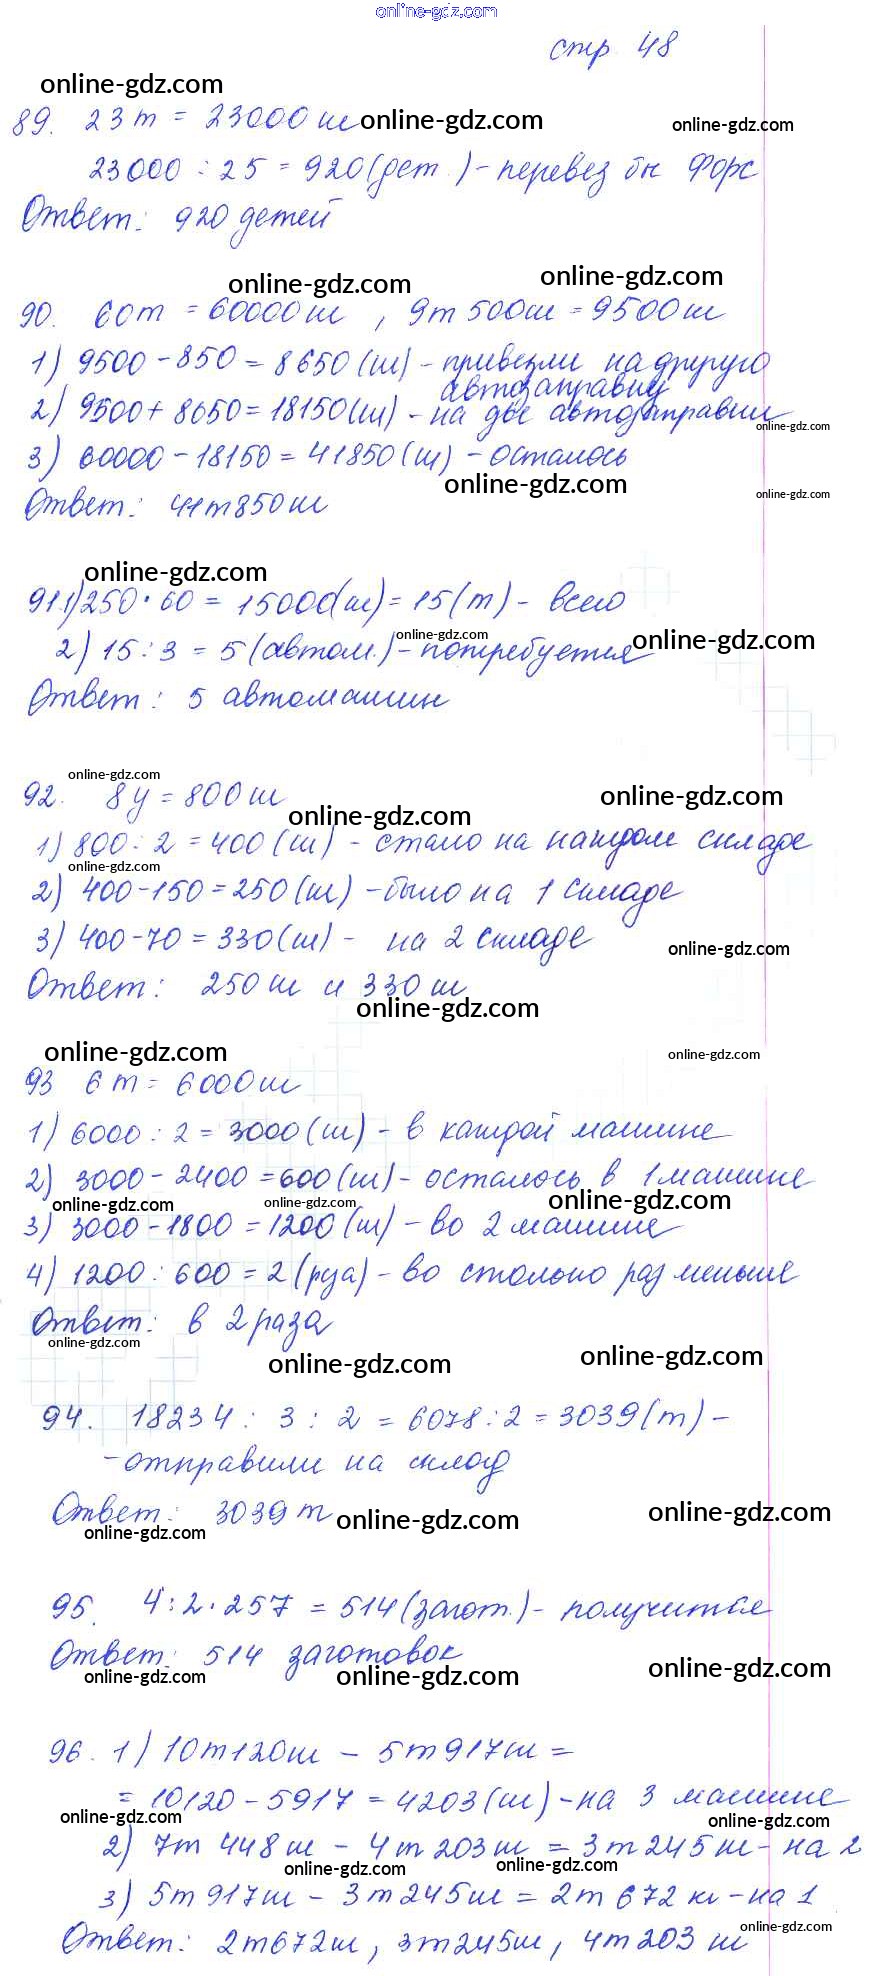 online-gdz.com
стр. 48
online-gdz.com
89. 23т = 23000кг online-gdz.com online-gdz.com
23000 : 25 = 920 (дет.) - перевез бы Форс
Ответ: 920 детей
online-gdz.com online-gdz.com
90. 60т = 60000кг, 9т 500кг = 9500кг
1) 9500 - 850 = 8650 (кг) - привезли на другую
автозаправку
2) 9500 + 8650 = 18150 (кг) - на две автозаправки
online-gdz.com
3) 60000 - 18150 = 41850 (кг) - осталось
online-gdz.com online-gdz.com
Ответ: 41т 850кг
online-gdz.com
91. 1) 250 · 60 = 15000 (кг) = 15 (т) - всего
online-gdz.com online-gdz.com
2) 15 : 3 = 5 (автом.) - потребуется
Ответ: 5 автомашин
online-gdz.com online-gdz.com
92. 8ц = 800кг
online-gdz.com
1) 800 : 2 = 400 (кг) - стало на каждом складе
online-gdz.com
2) 400 - 150 = 250 (кг) - было на 1 складе
3) 400 - 70 = 330 (кг) - на 2 складе
online-gdz.com
Ответ: 250кг и 330кг
online-gdz.com
online-gdz.com online-gdz.com
93 6т = 6000кг
1) 6000 : 2 = 3000 (кг) - в каждой машине
2) 3000 - 2400 = 600 (кг) - осталось в 1 машине
online-gdz.com online-gdz.com online-gdz.com
3) 3000 - 1800 = 1200 (кг) - во 2 машине
4) 1200 : 600 = 2 (раза) - во столько раз меньше
Ответ: в 2 раза
online-gdz.com
online-gdz.com online-gdz.com
94. 18234 : 3 : 2 = 6078 : 2 = 3039 (т) -
- отправили на склад
Ответ: 3039т
online-gdz.com online-gdz.com online-gdz.com
95. 4 : 2 · 257 = 514 (загот.) - получится
Ответ: 514 заготовок
online-gdz.com online-gdz.com online-gdz.com
96. 1) 10т 120кг - 5т 917кг =
= 10120 - 5917 = 4203 (кг) - на 3 машине
online-gdz.com online-gdz.com
2) 7т 448кг - 4т 203кг = 3т 245кг - на 2
online-gdz.com online-gdz.com
3) 5т 917кг - 3т 245кг = 2т 672кг - на 1
online-gdz.com
Ответ: 2т 672кг, 3т 245кг, 4т 203кг